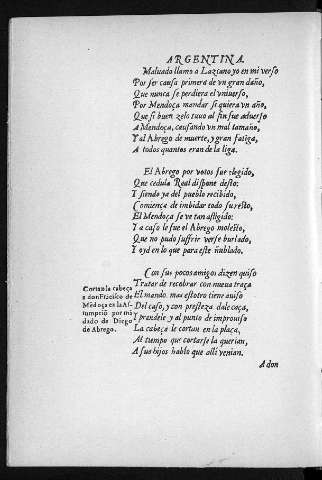 ARGENTINA.
Maluado llamo a Lazcano yo en mi verso
Por ser causa primera de vn gran daño,
Que nunca se perdiera el vniuerso,
Por Mendoça mandar si quiera vn año,
Que si buen zelo tuuo al fin fue aduerso
A Mendoça, causando vn mal tamaño,
Y al Abrego de muerte, y gran fatiga,
A todos quantos eran de la liga.
El Abrego por votos fue elegido,
Que cedula Real dispone desto:
Y siendo ya del pueblo recibido,
Comiença de imbidar todo su resto,
El Mendoça se ve tan afligido:
Y a caso le fue el Abrego molesto,
Que no pudo suffrir verse burlado,
Y oyd en lo que para este ñublado.
Con sus pocos amigos dizen quiso
Tratar de recobrar con nueua traça
El mando. mas estotro tiene auiso
Del caso, y con presteza dale caça,
Y prendele y al punto de improuiso
La cabeça le cortan en la plaça,
Al tiempo que cortarse la querian,
A sus hijos hablo que alli venian.
Cortan la cabeça
a don Frācisco de
Mēdoça en la As-
sumpciō por mā
dado de Diego
de Abrego.
A don